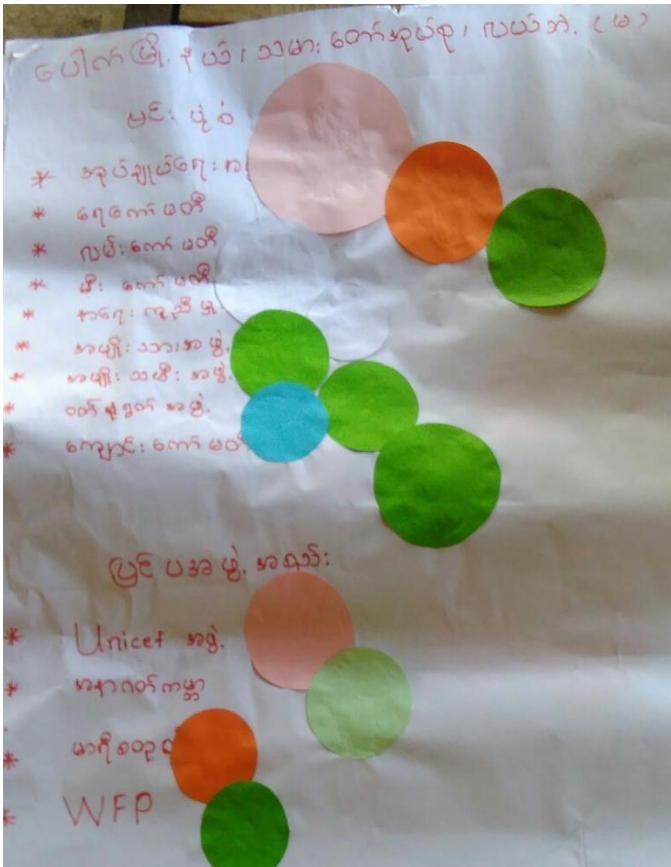 ပေါက်မြို့နယ်၊ သမားတော်အုပ်စု၊ လယ်ဘဲ့ (မ)
* အုပ်ချုပ်ရေး
* ရေကော်မတီ
* လမ်းကော်မတီ
* မီးကော်မတီ
* နာရေးကူညီမှု
* အမျိုးသားအဖွဲ့
* အမျိုးသမီးအဖွဲ့
* ဝတ်ရွတ်အဖွဲ့
* ကျောင်းကော်မတီ
ပြင်ပအဖွဲ့အစည်း
* Unicef အဖွဲ့
* အနာဂတ်ကမ္ဘာ
* WFP